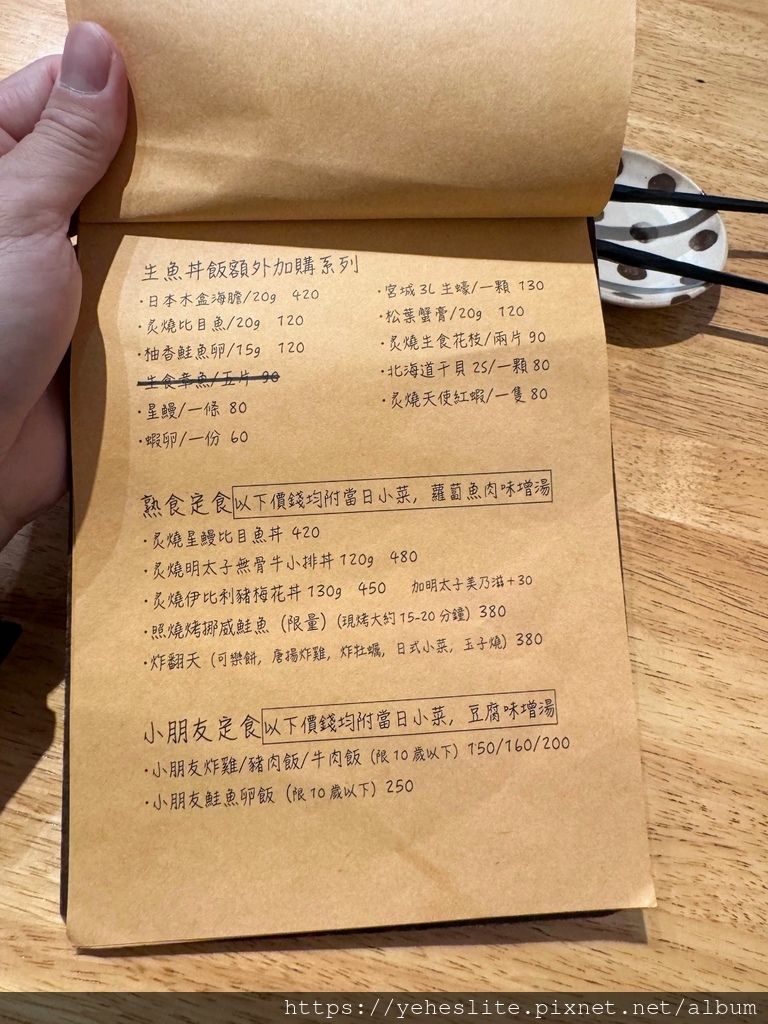 生魚丼飯額外加購系列
·日本木盒海膽/20g 420
·炙燒比目魚/20g 120
·柚香鮭魚卵/15g 120
·生食章魚/五片 90
·星鰻/一條 80
·蝦卵/一份 60
·宮城3L生蠔/一顆 130
·松葉蟹膏/20g 120
·炙燒生食花枝/兩片 90
·北海道干貝2S/一顆 80
·炙燒天使紅蝦/一隻 80
熟食定食 以下價錢均附當日小菜, 蘿蔔魚肉味增湯
·炙燒星鰻比目魚丼 420
·炙燒明太子無骨牛小排丼 120g 480
·炙燒伊比利豬梅花丼 130g 450 加明太子美乃滋+30
·照燒烤挪威鮭魚 (限量) (現烤大約15-20分鐘) 380
·炸翻天 (可樂餅, 唐揚炸雞, 炸牡蠣, 日式小菜, 玉子燒) 380
小朋友定食 以下價錢均附當日小菜, 豆腐味增湯
·小朋友炸雞/豬肉飯/牛肉飯 (限10歲以下) 150/160/200
·小朋友鮭魚卵飯 (限10歲以下) 250
https://yeheslite.pixnet.net/album